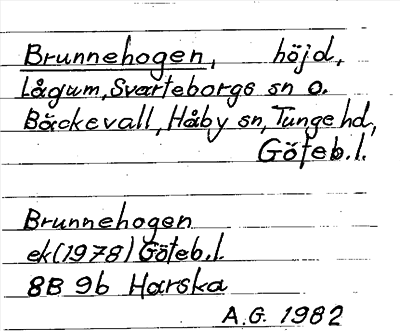 Brunnehogen, höjd,
Lågum, Svarteborgs sn o.
Bäckevall, Håby sn, Tunge hd,
Göteb.l.
Brunnehogen
ek (1978) Göteb.l.
8B 9b Harska
A.G. 1982